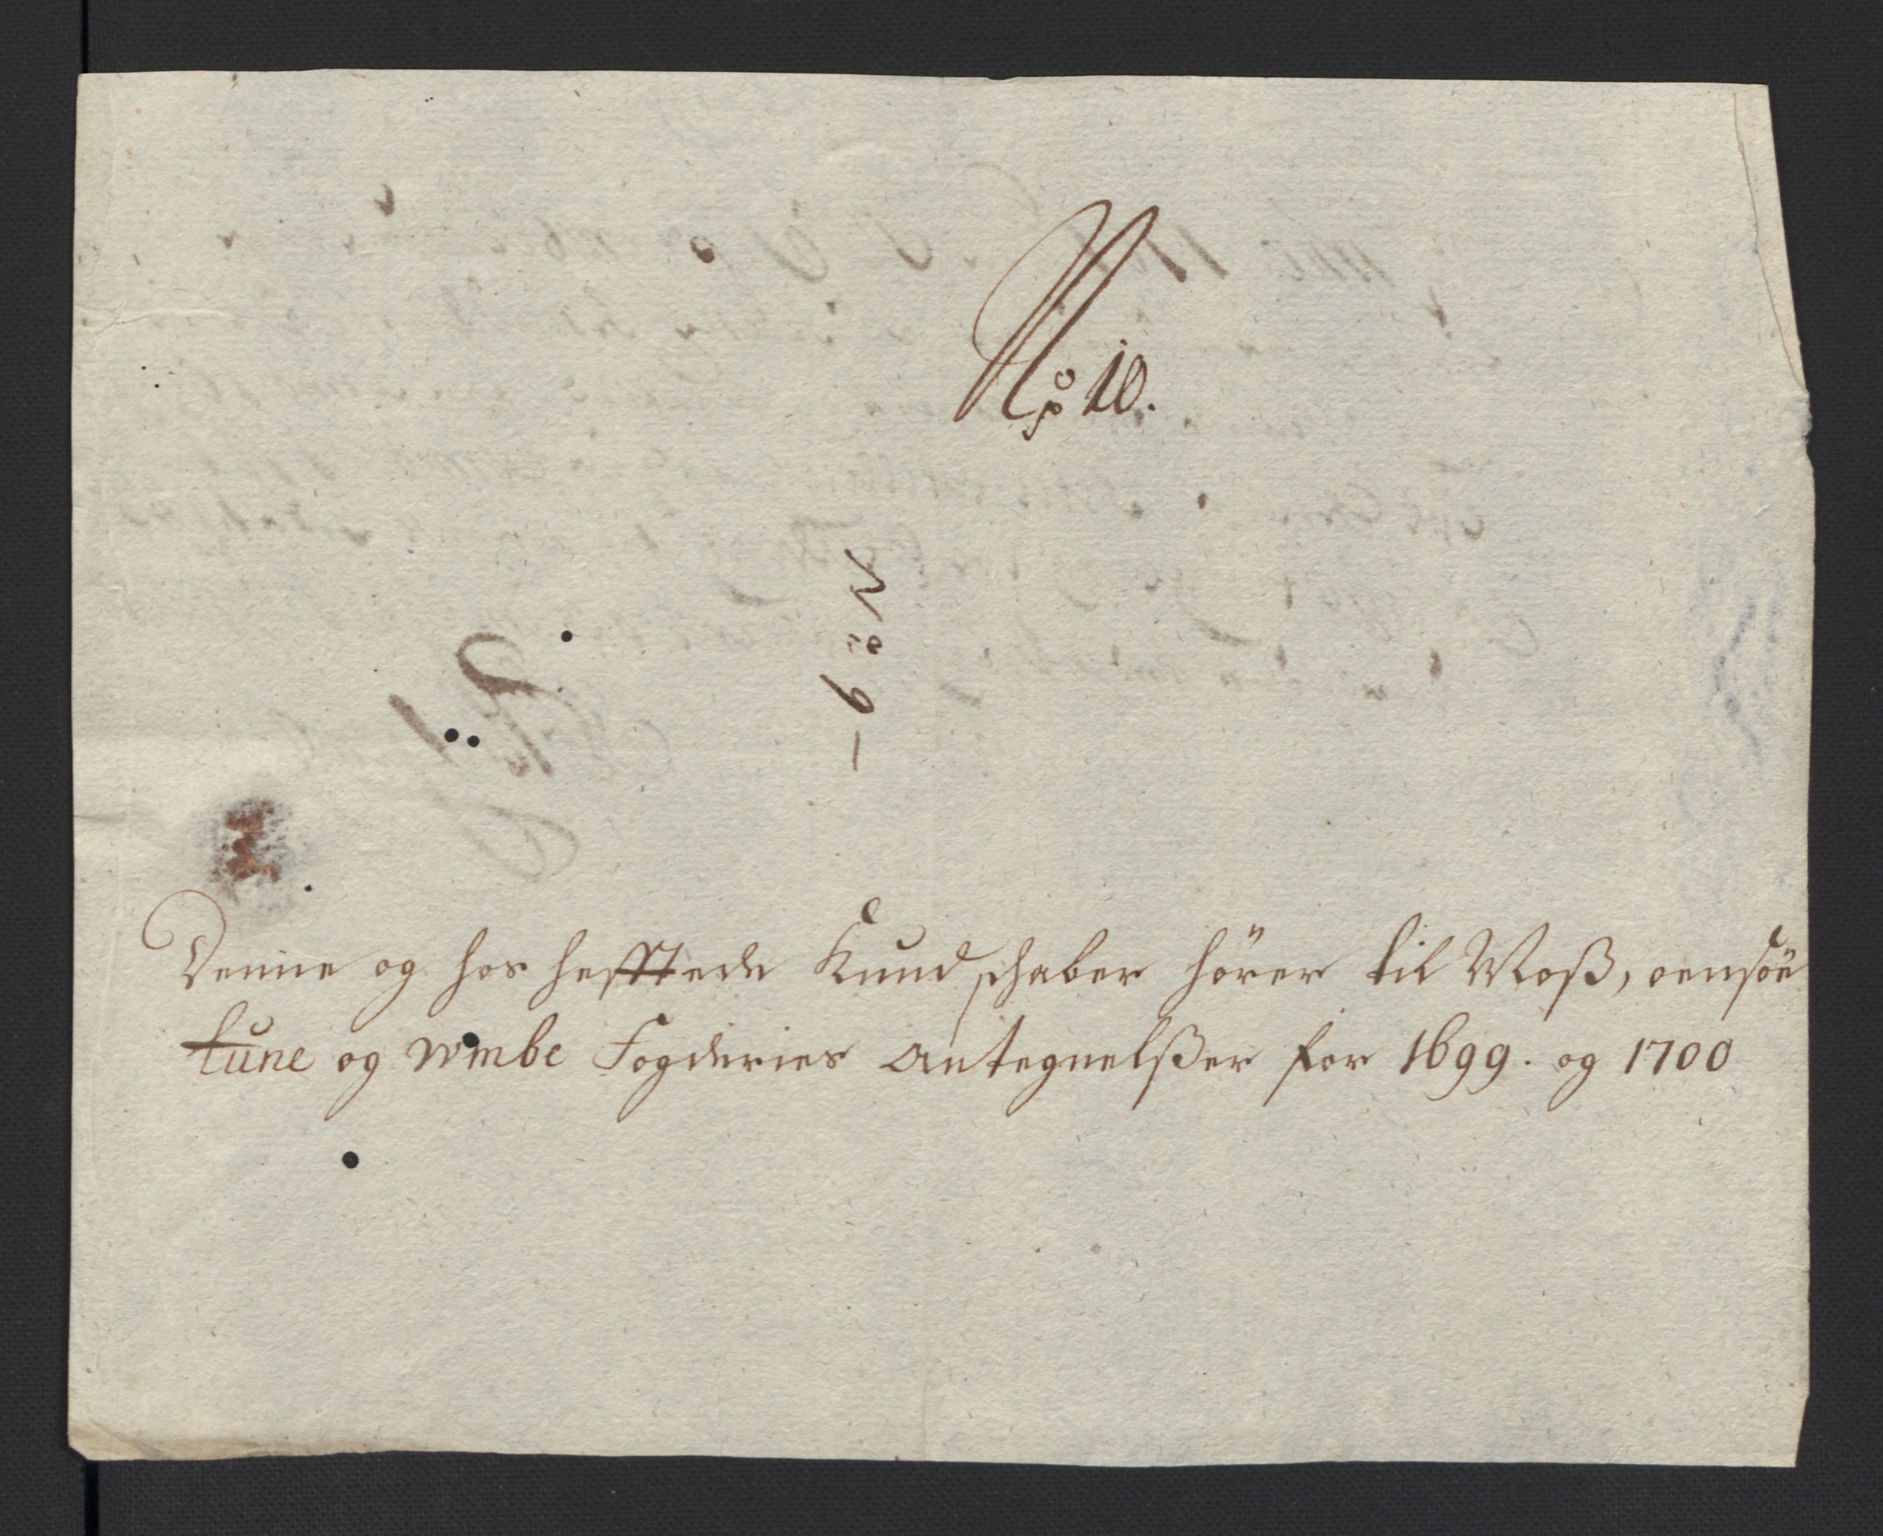 No 10.
No 6 –
Denne og hos hefftede Kundschaber hører til Moß, oensøe
tune og wembe Fogderies Antegnelßer for 1699. og 1700